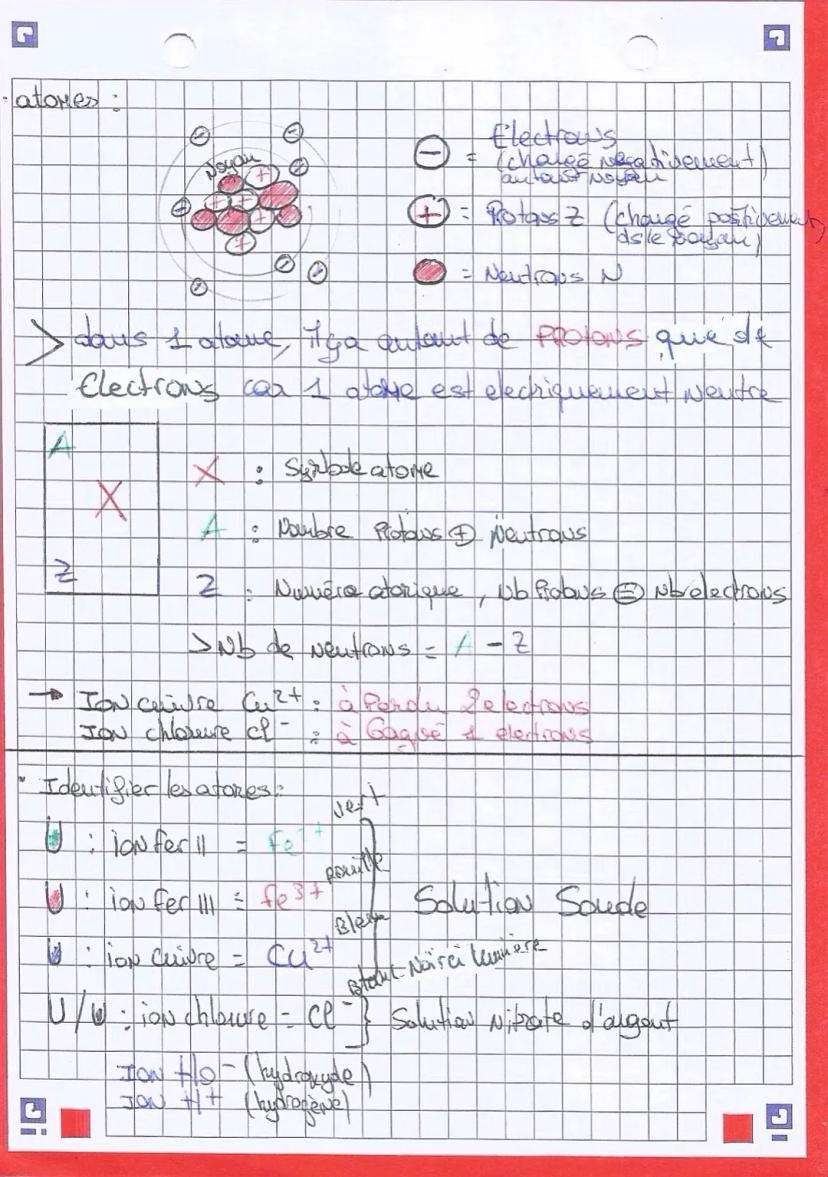 . atomes :
⊖ = Electrons
(chargé négativement)
autour Noyau
Noyau
⊕ = Protons Z (chargé positivement
ds le noyau)
= Neutrons N
> dans 1 atome, il y a autant de PROtons que de
Electrons car 1 atome est electriquement Neutre
A
X
Z
X : Symbole atome
A : Nombre Protons ⊕ Neutrons
Z : Numéro atomique, Nb Protons ⊜ Nb electrons
> Nb de Neutrons = A - Z
→ ION cuivre Cu²⁺ : à Perdu 2 electrons
ION chlorure Cl⁻ : à Gagné 1 electrons
• Identifier les atomes :
: ion fer II = Fe²⁺ vert
: ion fer III = Fe³⁺ rouille
: ion cuivre = Cu²⁺ Bleu
Solution Soude
Blanc Noirci lumière
U/U : ion chlorure = Cl⁻ } Solution Nitrate d'argent
ION HO⁻ (hydroxyde)
ION H+ (hydrogène)